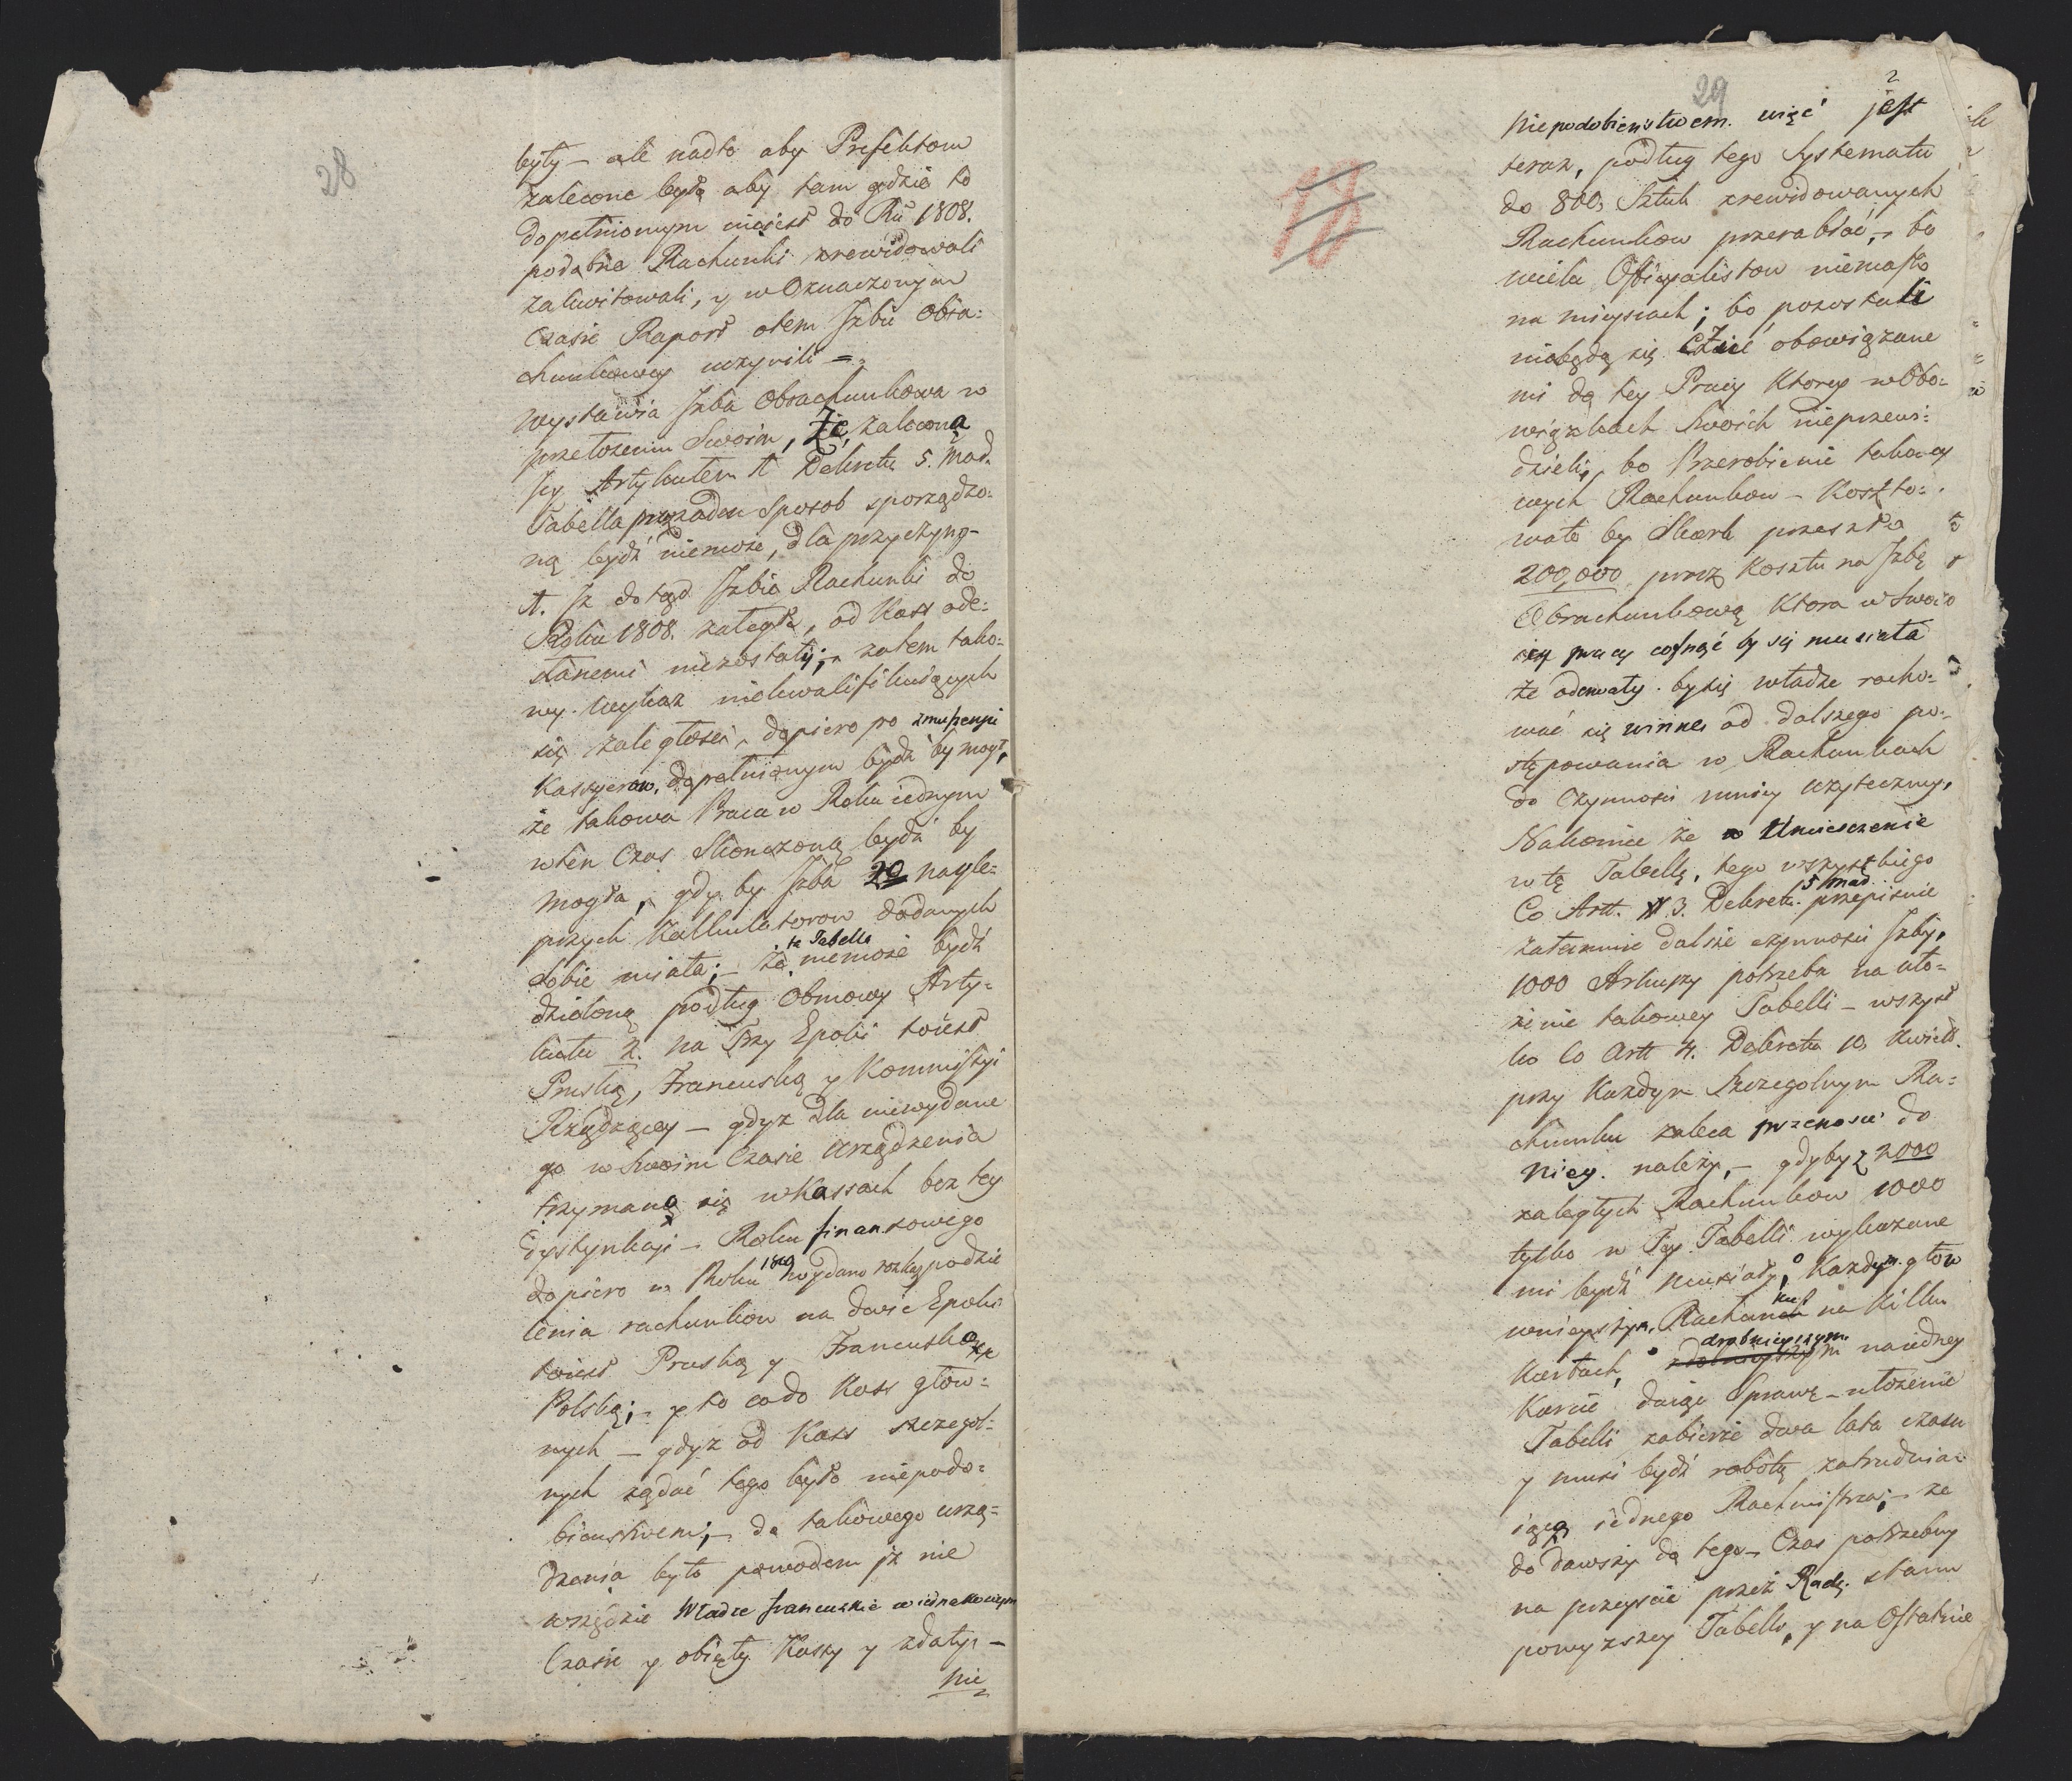 28
były – ale nadto aby Prefektom
zalecone było aby tam gdzie to
dopełnionym nieiest do Ru 1808.
podobne Rachunki zrewidowali
zakwitowali, y w Oznaczonym
Czasie Raport otem Jzbie Obra:
chunkowey uczynili =
Wystawia Jzba Obrachunkowa w
przełożeniu Swoim, Że, zalecona
Jey Artykułem 1t Dekretu 5. Mad.
Tabella przżaden Sposob sporządzo:
ną bydź niemoże, dla przyczyny –
1t. Jż dotąd Jzbie Rachunki do
Roku 1808. zaległe, od Kass ode:
słanemi niezostały; – zatem tako:
wy. Wykaz niekwalifikuiących
się zaległości, dopiero po zmuszeniu
Kassyerow, dopełnionym bydź by mogł,
że takowa Praca w Roku iednym
wten Czas Skonczoną bydź by
mogła, gdy by Jzba 20 nayle:
pszych Kalkulatorow dodanych
sobie miała; – że ta Tabella niemoże bydź
dzieloną podług Osnowy Arty:
kułu 2. na Trzy Epoki toiest
Pruską, Francuską y Kommissyi
Rządzącey – gdyż dla niewydane
go w Swoim Czasie urządzenia
trzymano się w Kassach bez tey
Dystynkcyi – Roku finansowego
dopiero w Roku 1809 wydano rozkaz podzie
lenia rachunkow na dwie Epoki
toiest Pruską y Francusko
Polską; – y to codo Kass głow:
nych – gdyż od Kass szczegol:
nych żądać tego było niepodo:
bieństwem; – do takowego urzą:
dzenia było powodem jż nie
wszędzie Władze francuzkie w iednakowym
Czasie y obięły Kassy y zdatyr –
nie
29
2
18
Niepodobieństwem. więc jest
teraz, podług tego Systematu
do 800 Sztuk zrewidowanych
Rachunkow przerabiać, – bo
wielu Officyalistow niemasz
na mieyscach; bo pozostali
niebędą się Czuć obowiązane
mi do tey Pracy Ktorey w Obo:
wiązkach Swoich nieprzewi:
dzieli, bo Przerobienie takowy
wych Rachunkow – Koszto:
wało by Skarb przeszło
200,000 procz Kosztu na Jzbę
Obrachunkową Ktora w Swoi
iey pracy cofnąć by się musiała
że oderwały. by się władze racho:
wać się winne, od dalszego po:
stępowania w Rachunkach
do Czynnosci mniey użyteczney,
Nakoniec że w Umieszczenie
w tę Tabellę, tego wszystkiego
Co Art. 3. Dekretu 5 Mad. przepisuie
zatamuie dalsze czynnosci Jzby,
1000 Arkuszy potrzeba na uło:
żenie takowey Tabelli – wszyst
ko Co Art 4. Dekretu 10 Kwiet.
przy Każdym Szczegolnym Ra:
chunku zaleca przenosic do
Niey. należy, – gdyby z 2000
zaległych Rachunkow 1000
tylko w Tey Tabelli wykazane
mi bydź musiały, o Każdym głow
wnieyszym, Rachunku na Kilku
Kartach, o drobnieyszym naiedney
Karcie daiąc Sprawę – ułożenie
Tabelli zabierze dwa lata czasu
y musi bydź robotą zatrudnia:
iącą iednego Rachmistrza; – że
dodawszy do tego – Czas potrzebny
na przeyscie przez Radę. stanu
powyższey Tabelli, y na Ostatnie